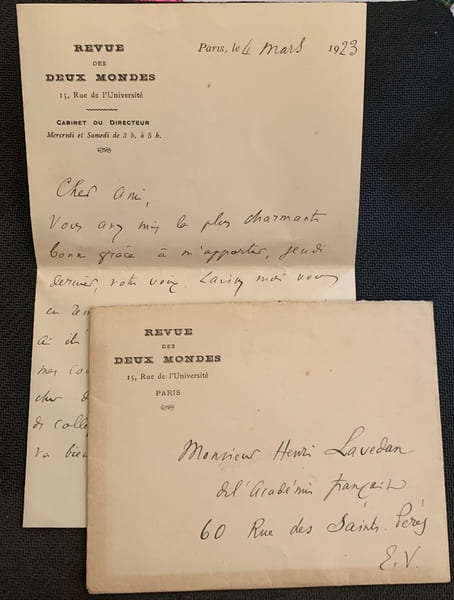 REVUE
DES
DEUX MONDES
15, Rue de l'Université
CABINET DU DIRECTEUR
Mercredi et Samedi de 3 h. à 5 h.
Paris, le 4 mars 1923
Cher ami,
Vous avez mis la plus charmante
bonne grâce à m'apporter, jeudi
dernier, votre voix. Laissez moi vous
en
ai
mes
cher
de
va bien
REVUE
DES
DEUX MONDES
15, Rue de l'Université
PARIS
Monsieur Henri Lavedan
de l'Académie française
60 Rue des Saints-Pères
E.V.